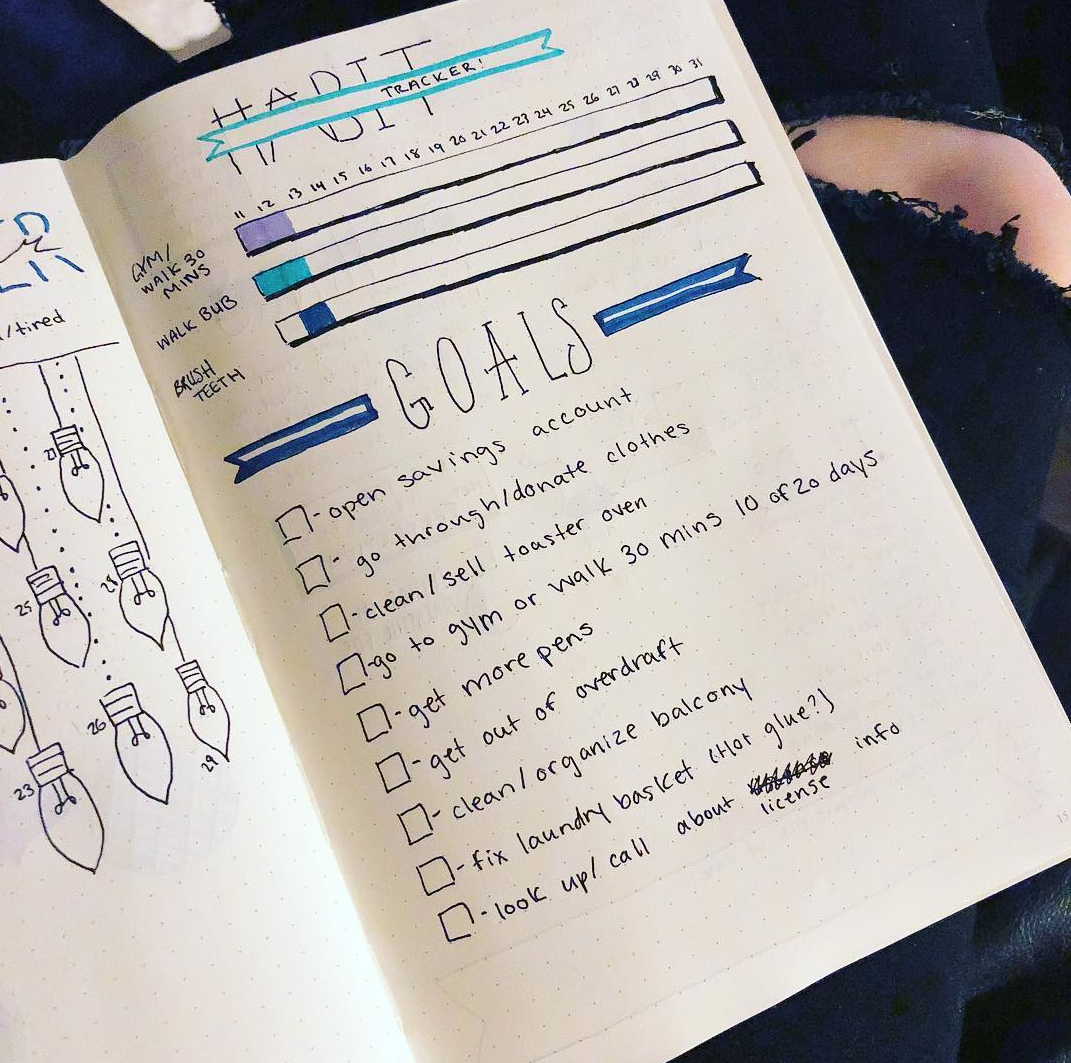 HABIT
TRACKER!
11 12 13 14 15 16 17 18 19 20 21 22 23 24 25 26 27 28 29 30 31
GYM/
WALK 30
MINS
WALK BUB
BRUSH
TEETH
GOALS
- open savings account
- go through/donate clothes
- clean/sell toaster oven
- go to gym or walk 30 mins 10 of 20 days
- get more pens
- get out of overdraft
- clean/organize balcony
- fix laundry basket (Hot glue?)
- look up/call about info
license
/tired
27
25
28
26
29
23